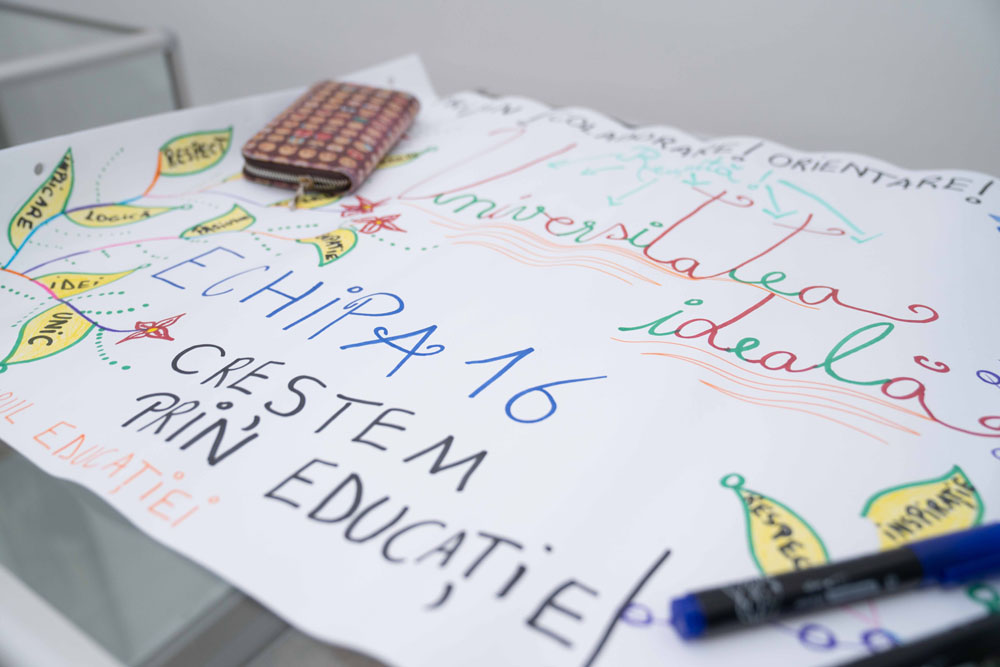 PRIN COLABORARE! ORIENTARE!
Reușită!
Universitatea
ideală
RESPECT
IMPLICARE
LOGICA
PASIUNE
IDEI
UNIC
ECHIPA 16
CRESTEM
PRIN EDUCAȚIE!
EDUCAȚIEI
RESPECT
INSPIRAȚIE